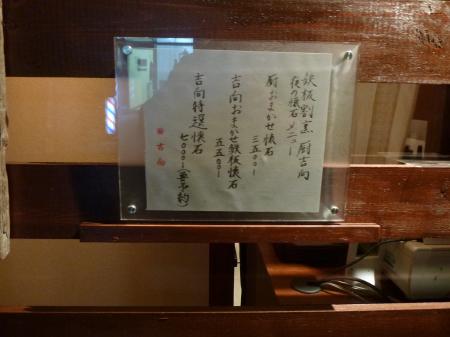 鉄板割烹 厨吉向
夜の懐石メニュー
厨おまかせ懐石
三五〇〇ー
吉向おまかせ鉄板懐石
五五〇〇ー
吉向特選懐石
七〇〇〇ー(要予約)
吉向